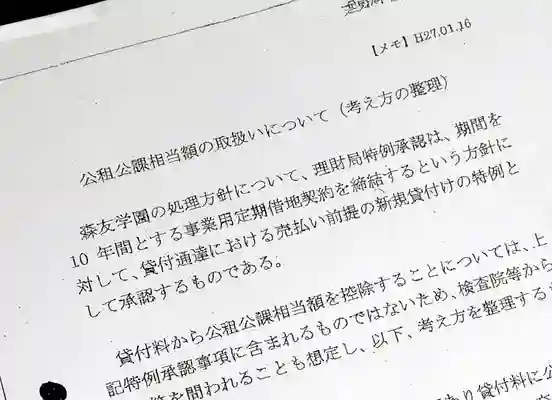 【メモ】H27.01.16
公租公課相当額の取扱いについて（考え方の整理）
森友学園の処理方針について、理財局特例承認は、期間を
10 年間とする事業用定期借地契約を締結するという方針に
対して、貸付通達における売払い前提の新規貸付けの特例と
して承認するものである。
貸付料から公租公課相当額を控除することについては、上
記特例承認事項に含まれるものではないため、検査院等から
を問われることも想定し、以下、考え方を整理する
あり貸付料に公